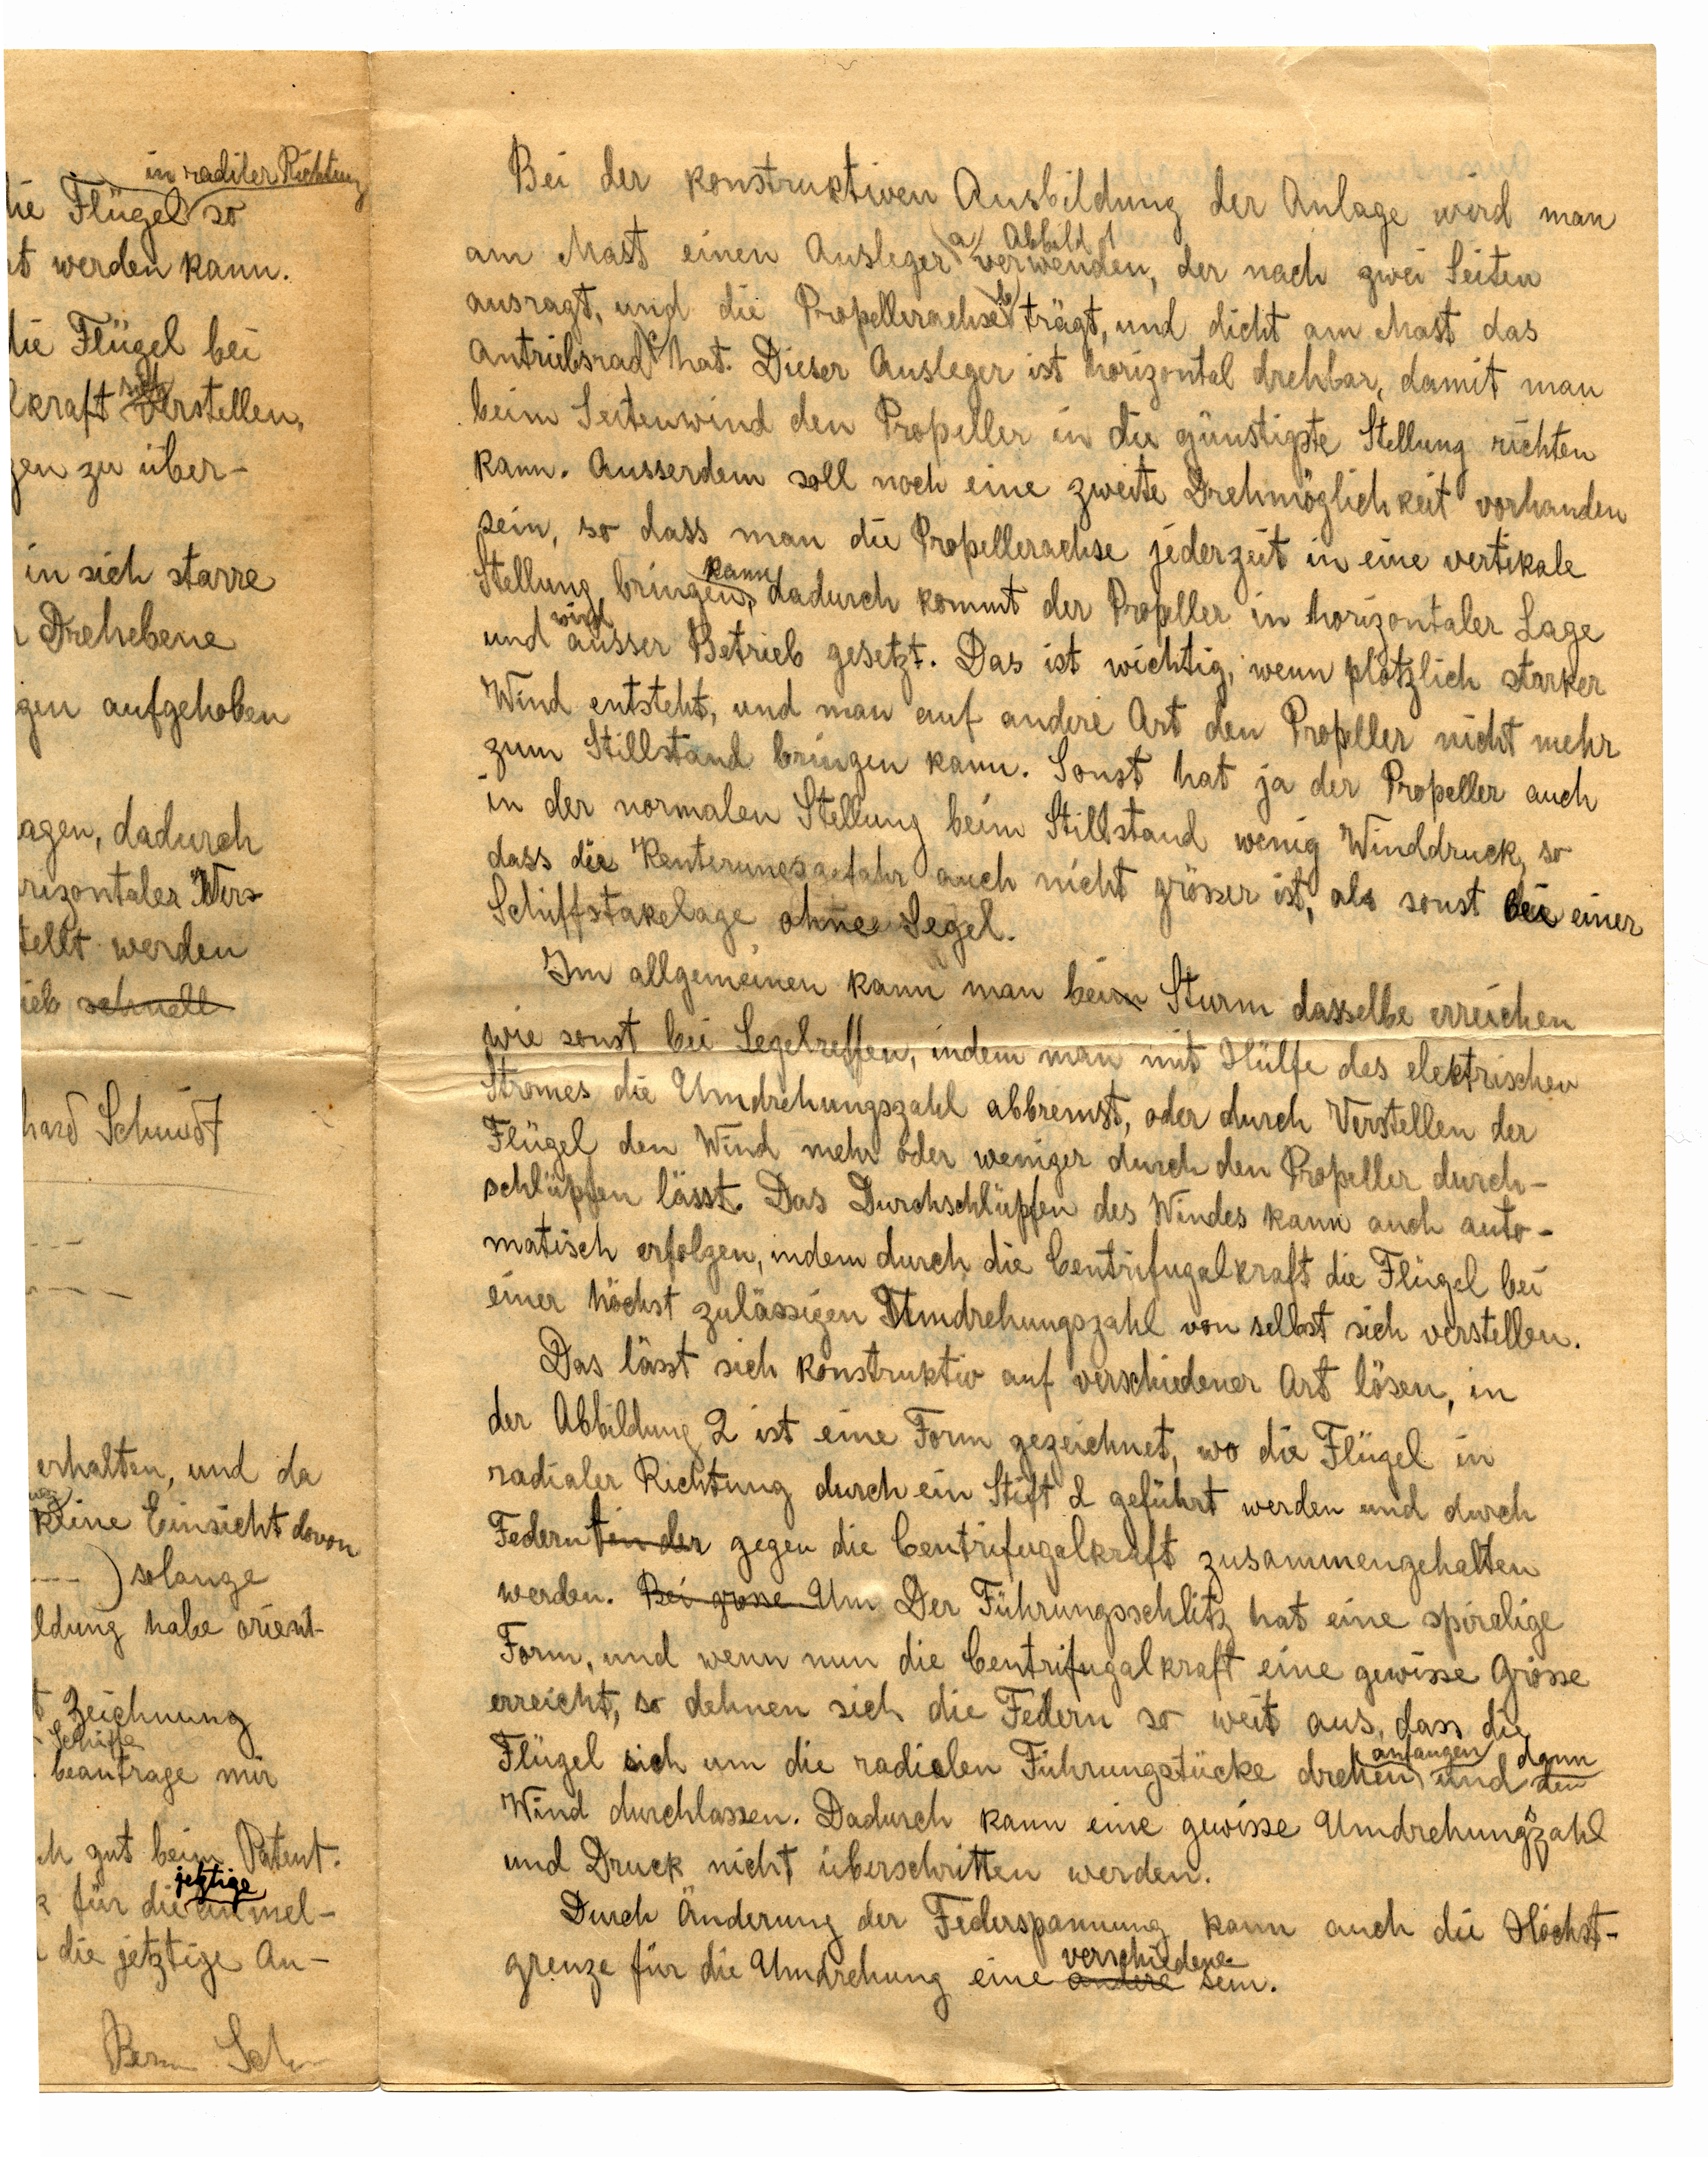 in radiler Richtung
die Flügel so
rt werden kann.
die Flügel bei
lkraft verstellen,
gen zu über-
in sich starre
Drehebene
gen aufgehoben
agen, dadurch
rizontaler
tellt werden
ieb schnell
hard Schmidt
erhalten, und da
keine Einsicht davon
) solange
ldung habe orient-
t Zeichnung
Schiffe
beantrage mir
ch gut beim Patent.
jetztige
für die anmel-
die jetztige An-
Bei der konstruktiven Ausbildung der Anlage wird man
a Abbild 1
am Mast einen Ausleger verwenden, der nach zwei Seiten
ausragt, und die Propellerachse b trägt, und dicht am Mast das
Antriebsrad c hat. Dieser Ausleger ist horizontal drehbar, damit man
beim Seitenwind den Propeller in die günstigste Stellung richten
kann. Ausserdem soll noch eine zweite Drehmöglichkeit vorhanden
sein, so dass man die Propellerachse jederzeit in eine vertikale
kann
Stellung bringen, dadurch kommt der Propeller in horizontaler Lage
wird
und ausser Betrieb gesetzt. Das ist wichtig, wenn plötzlich starker
Wind entsteht, und man auf andere Art den Propeller nicht mehr
zum Stillstand bringen kann. Sonst hat ja der Propeller auch
in der normalen Stellung beim Stillstand wenig Winddruck, so
dass die Kenterungsgefahr auch nicht grösser ist, als sonst bei einer
Schiffstakelage ohne Segel.
Im allgemeinen kann man beim Sturm dasselbe erreichen
wie sonst bei Segelreffen, indem man mit Hülfe des elektrischen
Stromes die Umdrehungszahl abbremst, oder durch Verstellen der
Flügel den Wind mehr oder weniger durch den Propeller durch-
schlüpfen lässt. Das Durchschlüpfen des Windes kann auch auto-
matisch erfolgen, indem durch die Centrifugalkraft die Flügel bei
einer höchst zulässigen Umdrehungszahl von selbst sich verstellen.
Das lässt sich konstruktiv auf verschiedener Art lösen, in
der Abbildung 2 ist eine Form gezeichnet, wo die Flügel in
radialer Richtung durch ein Stift d geführt werden und durch
Federn f in der gegen die Centrifugalkraft zusammengehalten
werden. Bei grosse Um Der Führungsschlitz hat eine spiralige
Form, und wenn nun die Centrifugalkraft eine gewisse Grösse
erreicht, so dehnen sich die Federn so weit aus, dass die
anfangen dann
Flügel sich um die radialen Führungstücke drehen und den
Wind durchlassen. Dadurch kann eine gewisse Umdrehungszahl
und Druck nicht überschritten werden.
Durch Änderung der Federspannung kann auch die Höchst-
verschiedene
grenze für die Umdrehung eine andere sein.